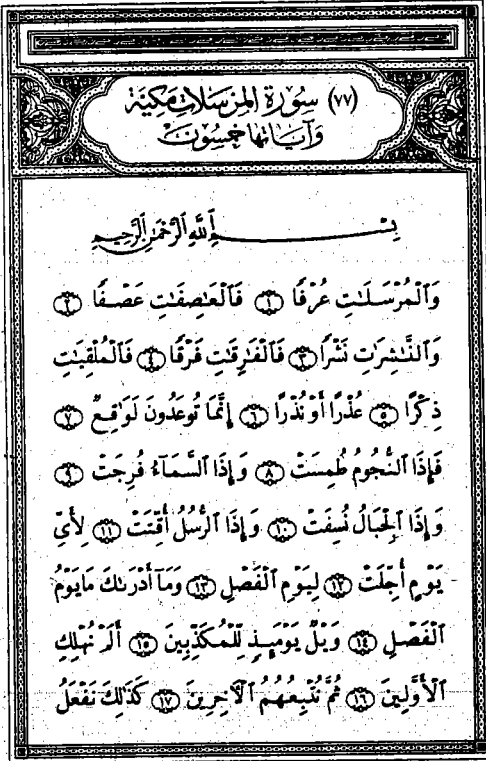 (٧٧) سُورَةُ المُرْسَلَاتِ مَكِيَّة
وَآيَاتُهَا خَمْسُونَ
بِسْمِ ٱللَّهِ ٱلرَّحْمَٰنِ ٱلرَّحِيمِ
وَٱلْمُرْسَلَٰتِ عُرْفًا ١ فَٱلْعَٰصِفَٰتِ عَصْفًا ٢
وَٱلنَّٰشِرَٰتِ نَشْرًا ٣ فَٱلْفَٰرِقَٰتِ فَرْقًا ٤ فَٱلْمُلْقِيَٰتِ
ذِكْرًا ٥ عُذْرًا أَوْ نُذْرًا ٦ إِنَّمَا تُوعَدُونَ لَوَٰقِعٌ ٧
فَإِذَا ٱلنُّجُومُ طُمِسَتْ ٨ وَإِذَا ٱلسَّمَآءُ فُرِجَتْ ٩
وَإِذَا ٱلْجِبَالُ نُسِفَتْ ١٠ وَإِذَا ٱلرُّسُلُ أُقِّتَتْ ١١ لِأَىِّ
يَوْمٍ أُجِّلَتْ ١٢ لِيَوْمِ ٱلْفَصْلِ ١٣ وَمَآ أَدْرَىٰكَ مَا يَوْمُ
ٱلْفَصْلِ ١٤ وَيْلٌ يَوْمَئِذٍ لِّلْمُكَذِّبِينَ ١٥ أَلَمْ نُهْلِكِ
ٱلْأَوَّلِينَ ١٦ ثُمَّ نُتْبِعُهُمُ ٱلْءَاخِرِينَ ١٧ كَذَٰلِكَ نَفْعَلُ